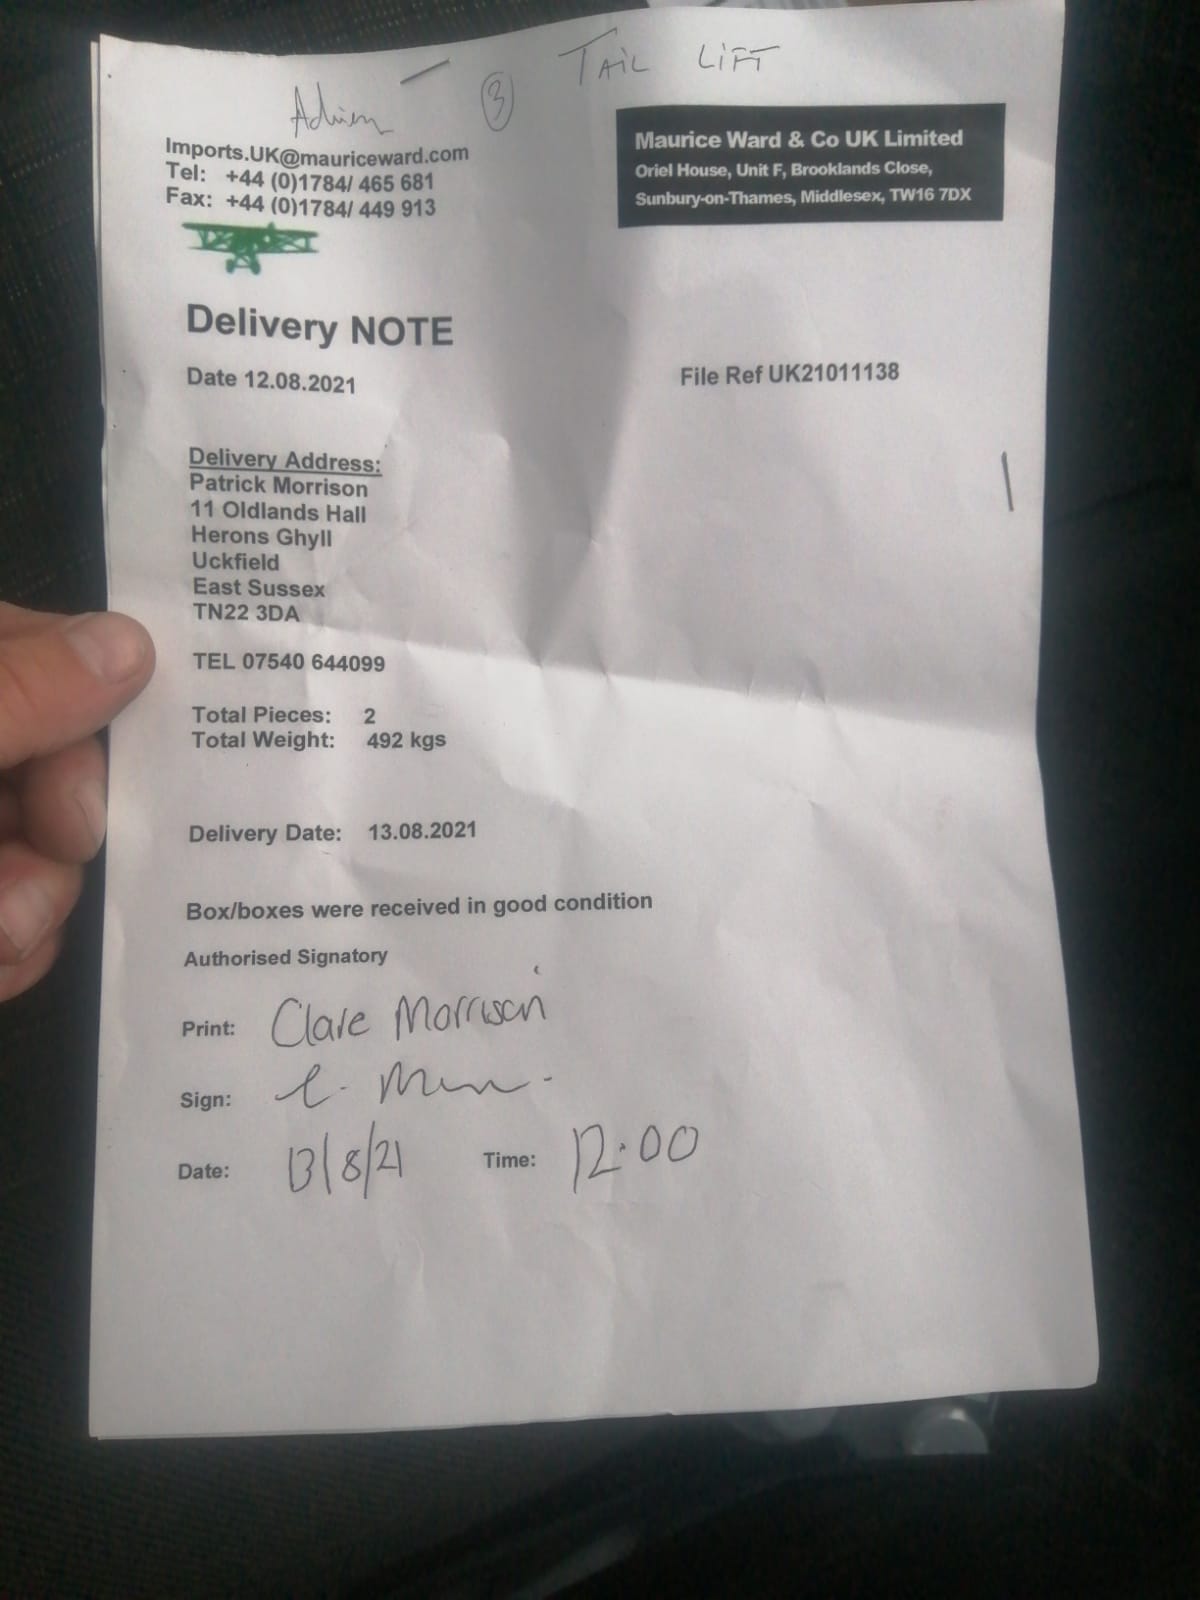 TAIL LIFT
3
Adrien
Imports.UK@mauriceward.com
Tel: +44 (0)1784/ 465 681
Fax: +44 (0)1784/ 449 913
Maurice Ward & Co UK Limited
Oriel House, Unit F, Brooklands Close,
Sunbury-on-Thames, Middlesex, TW16 7DX
Delivery NOTE
Date 12.08.2021
File Ref UK21011138
Delivery Address:
Patrick Morrison
11 Oldlands Hall
Herons Ghyll
Uckfield
East Sussex
TN22 3DA
TEL 07540 644099
Total Pieces: 2
Total Weight: 492 kgs
Delivery Date: 13.08.2021
Box/boxes were received in good condition
Authorised Signatory
Print: Clare Morrison
Sign:
Date: 13/8/21 Time: 12:00